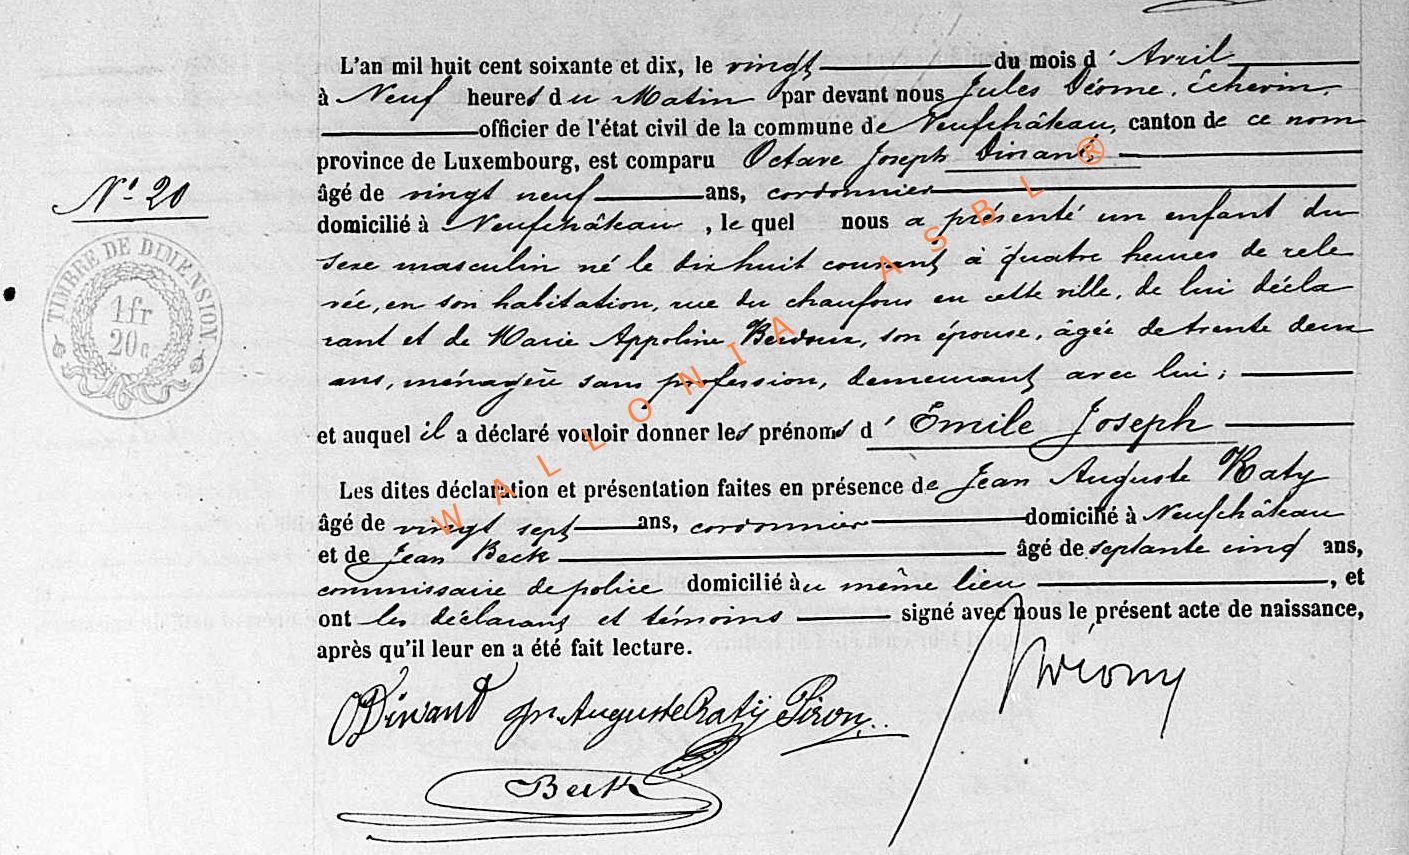 L'an mil huit cent soixante et dix, le vingt du mois d' Avril
à Neuf heures du Matin par devant nous Jules Déome, Échevin,
officier de l'état civil de la commune de Neufchâteau, canton de ce nom
province de Luxembourg, est comparu Octave Joseph Dinant,
âgé de vingt neuf ans, cordonnier
Nº 20
domicilié à Neufchâteau, le quel nous a présenté un enfant du
sexe masculin né le dix huit courant à quatre heures de rele
vée, en son habitation, rue du chaufour en cette ville, de lui décla
rant et de Marie Appoline, son épouse, âgée de trente deux
ans, ménagère sans profession, demeurant avec lui;
et auquel il a déclaré vouloir donner les prénoms d' Émile Joseph
Les dites déclaration et présentation faites en présence de Jean Auguste Katy
âgé de vingt sept ans, cordonnier domicilié à Neufchâteau
et de Jean Beck âgé de septante cinq ans,
commissaire de police domicilié au même lieu, et
ont les déclarant et témoins signé avec nous le présent acte de naissance,
après qu'il leur en a été fait lecture.
TIMBRE DE DIMENSION
1 fr
20 c
WALLONIA ASBL ®
O Dinant Auguste Katy Piron
Beck